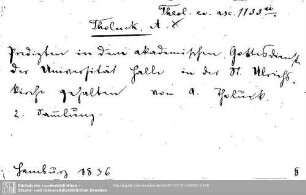 Theol. ev. asc. 1133
Tholuck, A.
Predigten in dem akademischen Gottesdienst
der Universität Halle in der St. Ulrichs
kirche gehalten von A. Tholuck
2. Sammlung
Hamburg 1836 8
Sächsische Landesbibliothek –
Staats- und Universitätsbibliothek Dresden